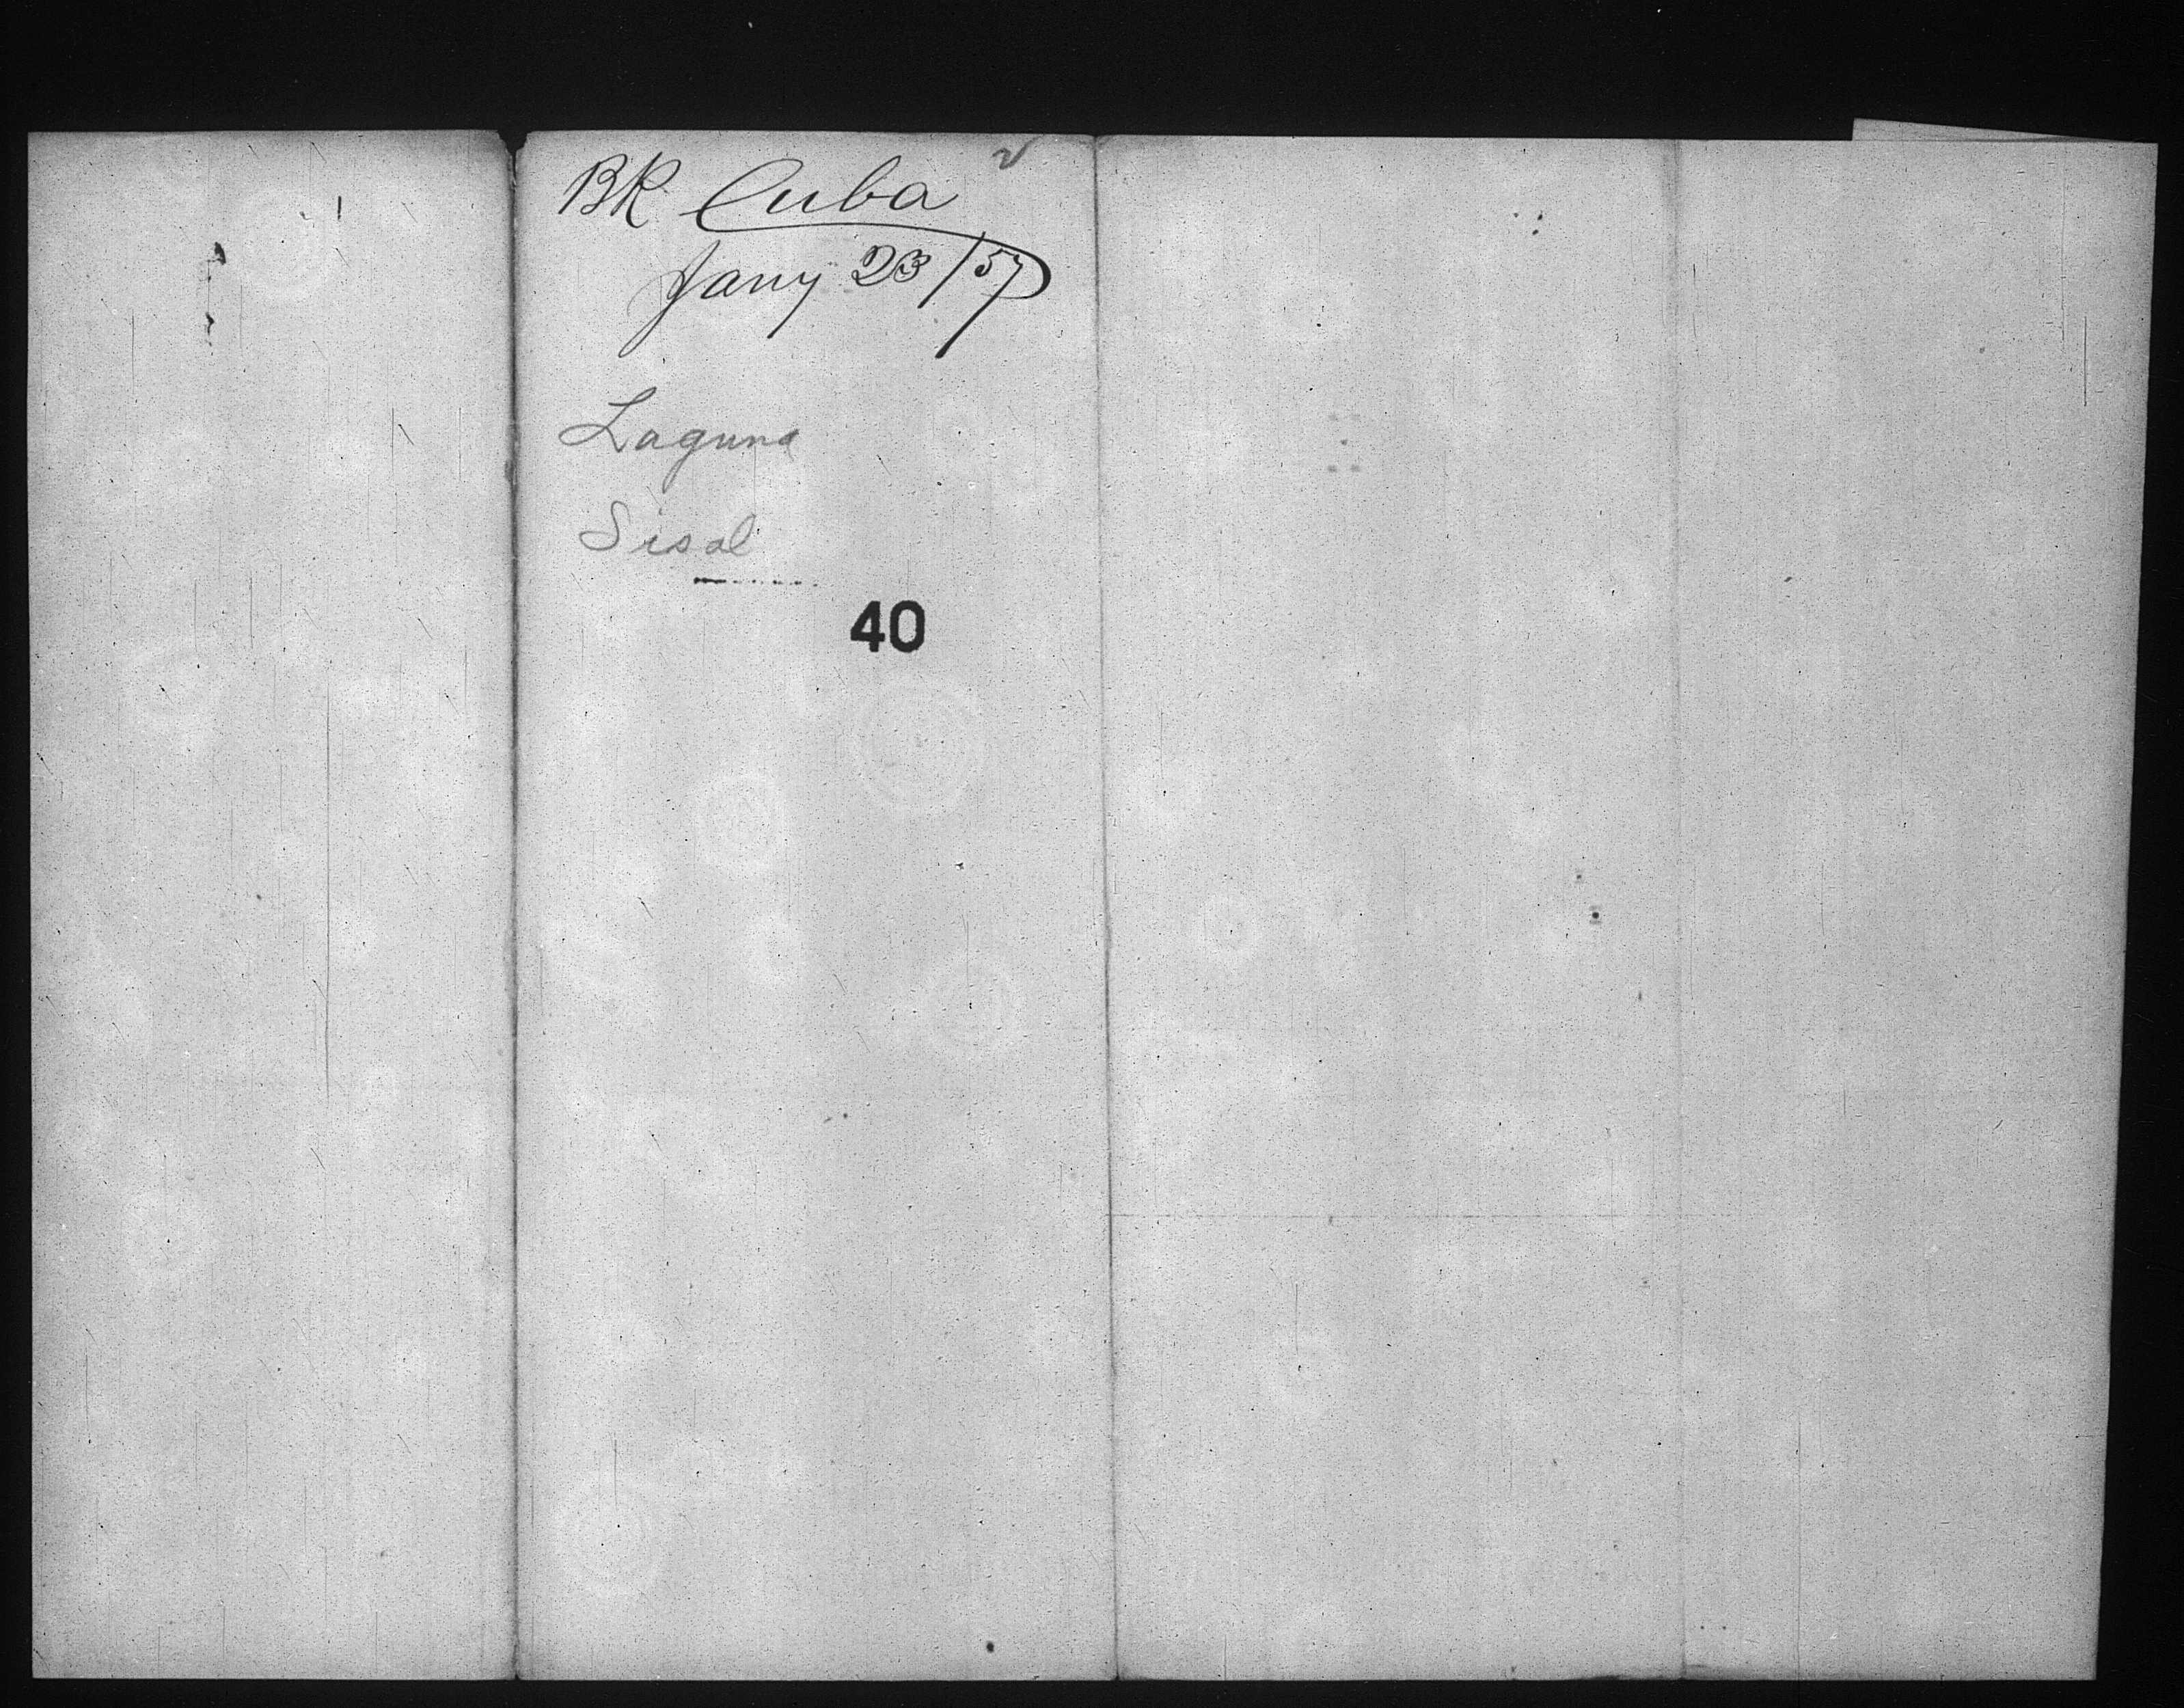 BK Cuba
Jany 23/57
Laguna
Sisal
40